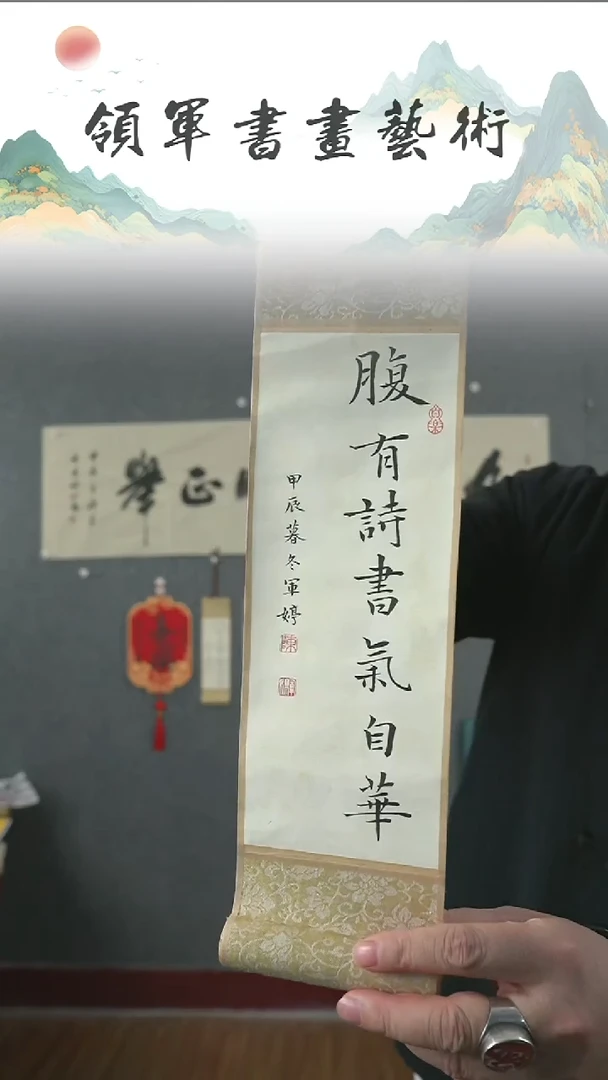 領軍書畫藝術
腹有詩書氣自華
甲辰暮冬軍婷
正